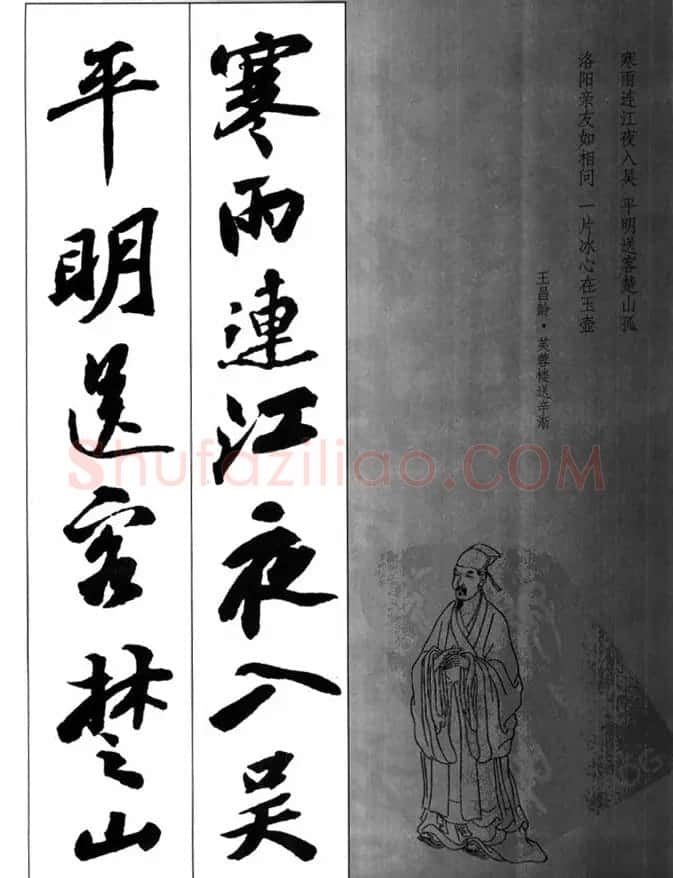 寒雨连江夜入吴 平明送客楚山孤
洛阳亲友如相问 一片冰心在玉壶
王昌龄·芙蓉楼送辛渐
寒雨連江夜入吴
平明送客楚山
Shufaziliao.COM